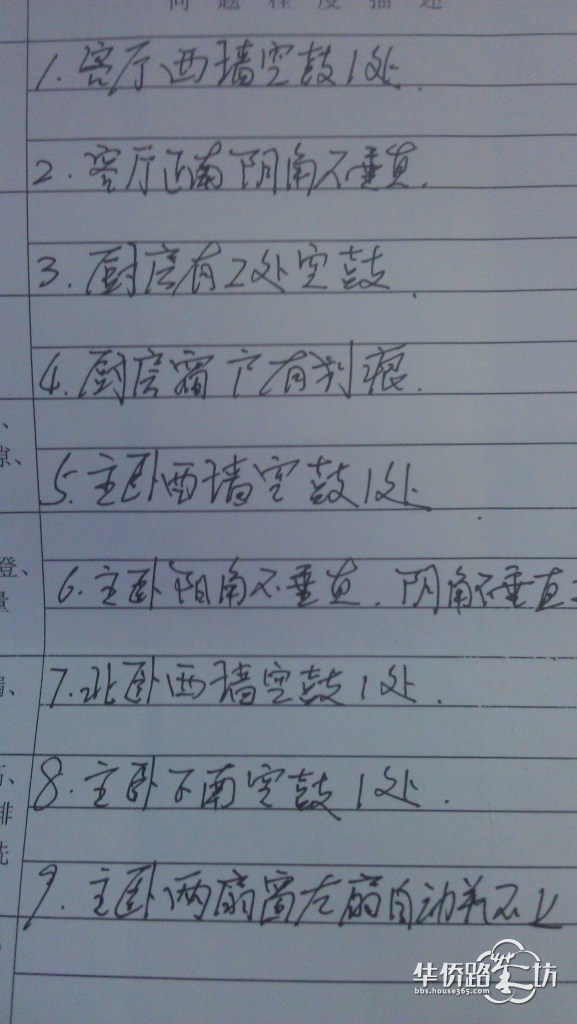 问题程度描述
1. 客厅西墙空鼓1处.
2. 客厅正南阴角不垂直.
3. 厨房有2处空鼓.
4. 厨房窗户有划痕.
、
5. 主卧西墙空鼓1处
6. 主卧阳角不垂直. 阴角不垂直
量
7. 北卧西墙空鼓1处.
8. 主卧下南空鼓1处.
排
洗
9. 主卧两扇窗左扇自动关不上
华侨路茶坊
bbs.house365.com